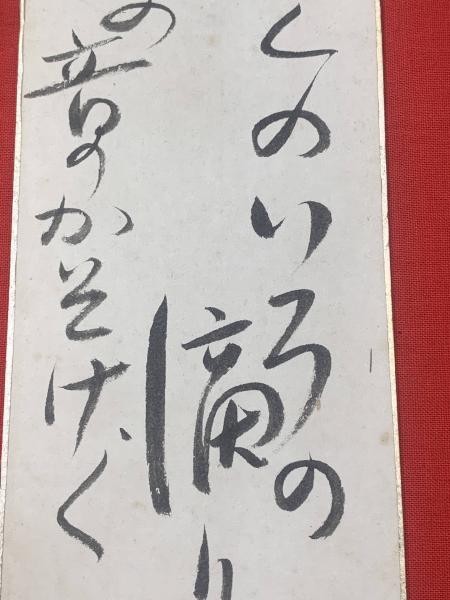 くのいろの
滴り
の音のかそけく